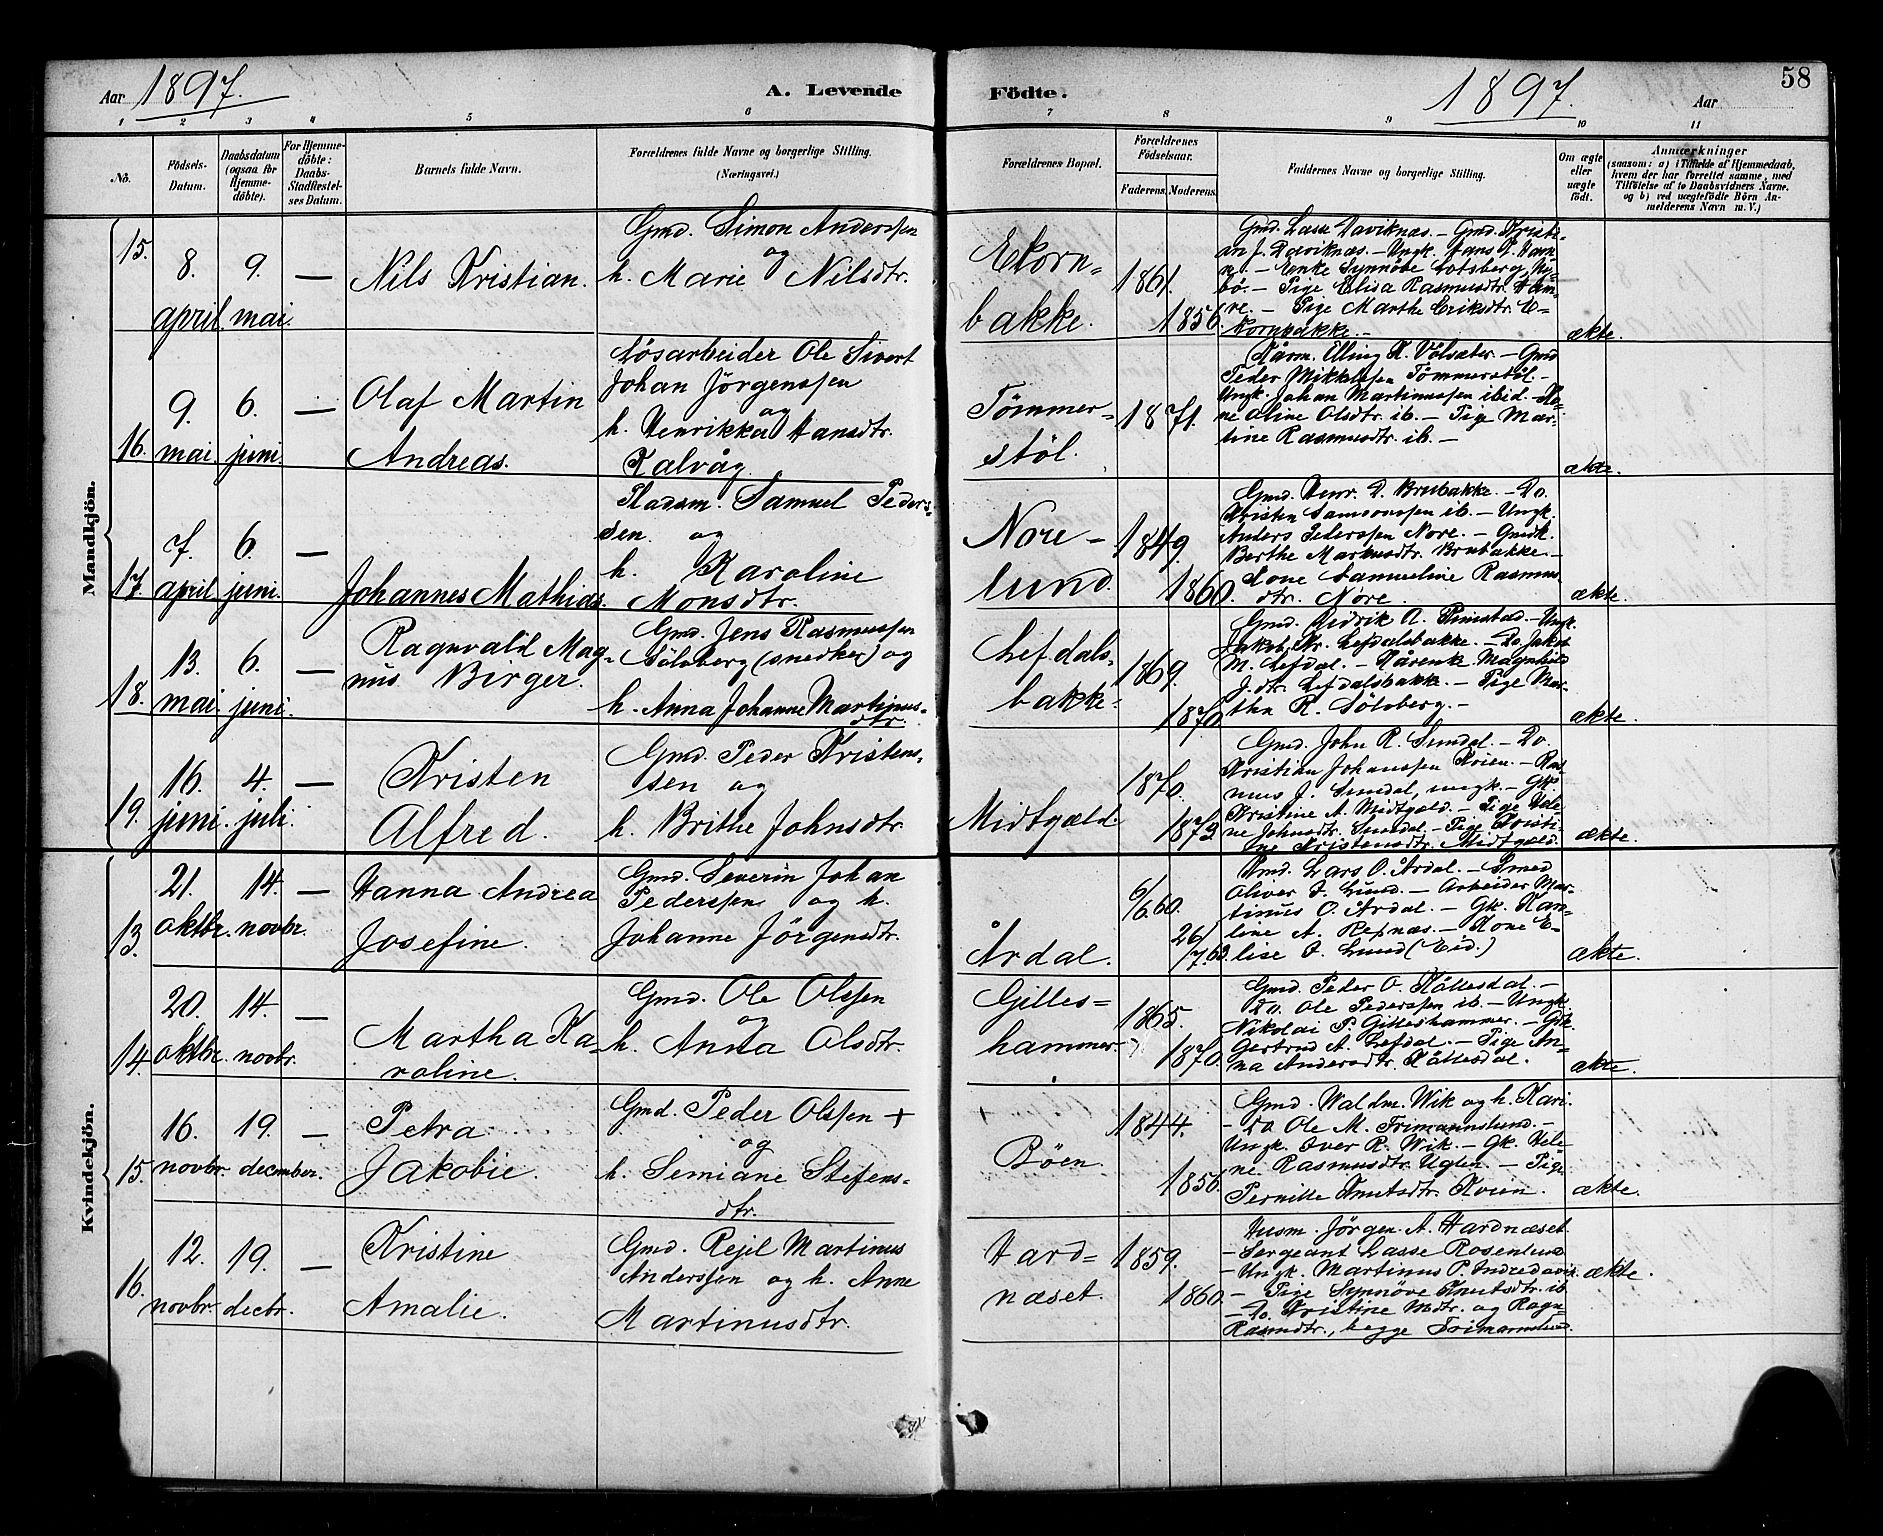 Aar 1897. A. Levende Födte. 1897. Aar 58
1 2 3 4 5 6 7 8 9 10 11
No.
Födsels-Datum.
Daabsdatum (ogsaa for Hjemme-döbte).
For Hjemme-döbte: Daabs-Stadfæstel-ses Datum.
Barnets fulde Navn.
Forældrenes fulde Navne og borgerlige Stilling. (Næringsvei.)
Forældrenes Bopæl.
Forældrenes Födselsaar.
Faderens. Moderens.
Faddernes Navne og borgerlige Stilling.
Om ægte eller uægte födt.
Anmærkninger
(saasom: a) i Tilfælde af Hjemmedaab, hvem der har forrettet samme, med Tilföielse af to Daabsvidners Navne, og b) ved uægtefödte Börn An-melderens Navn m. V.)
Mandkjön.
15. 8. april 9. mai. —
Nils Kristian.
Gmd. Simon Anderssen
og
h. Marie Nilsdtr.
Ekorn=
bakke.
1861.
1856.
Gmd. Lasse Daviknæs. — Gmd. Kristi-
an J. Daviknæs. — Ungk. Hans
— Enke Synnöve Lotsberg, Ny-
bö. — Pige Elisa Rasmusdtr. Ham-
re. — Pige Marthe Eriksdtr. E-
kornbakke. —
ækte.
16. 9. mai. 6. juni. —
Olaf Martin
Andreas.
Lösarbeider Ole Sivert
Johan Jörgenssen
og
h. Henrikka Hansdtr.
Kalvåg.
Tömmer-
stöl.
1871.
Elling K. Völsæter. — Gmd
Peder Mikkelssen Tömmerstöl. —
Ungk. Johan Martinussen ibid. — Ko-
ne Oline Olsdtr. ib. — Pige Mar-
tine Rasmusdtr. ib. —
ækte.
17. 7. april 6. juni. —
Johannes Mathias.
Pladsm. Samuel Peders-
sen og
h. Karoline
Monsdtr.
Nore-
lund.
1849.
1860.
Gmd. Henr. D. Brubakke. — Do.
Kristen Samsonssen ib. — Ungk.
Anders Pederssen Nore. — Gmdk.
Berthe Markusdtr. Brubakke. —
Kone Samueline Rasmus
dtr. Nore.
ækte.
18. 13. mai. 6. juni. —
Ragnvald Mag-
nus Birger.
Gmd. Jens Rasmussen
Sölvberg (snedker) og
h. Anna Johanne Martinus-
dtr.
Lefdals-
bakke.
1869.
1870.
Gmd. Didrik A. Rimstad. — Ungk.
Jakob Kr. Lefdalsbakke. — Do. Jakob
M. Lefdal. — Kårenk. Magnhild
J.dtr. Lefdalsbakke. — Pige Mar-
tha R. Sölvberg. —
ækte.
19. 16. juni. 4. juli. —
Kristen
Alfred.
Gmd. Peder Kristens-
sen og
h. Brithe Johnsdtr.
Midtgæld.
1870.
1873.
Gmd. John R. Sundal. — Do.
Kristian Johanssen Kvien. — Ras
mus J. Sundal, ungk. — Gk.
Kristine A. Midtgæld. — Pige Hele-
ne Johnsdtr. Sundal. — Pige Kristi-
ne Kristensdtr. Midtgæld.
ækte.
Kvindekjön.
13. 21. oktbr. 14. novbr. —
Hanna Andrea
Josefine.
Gmd. Severin Johan
Pederssen og h.
Johanne Jörgensdtr.
Årdal.
6/6.60.
26/7.63.
Gmd. Lars O. Årdal. — Smed
Oliver J. Lund. — Arbeider Mar-
tinus O. Årdal. — Gk. Kan-
line A. Refnæs. — Kone E-
lise J. Lund (Eid.)
ækte.
14. 20. oktbr. 14. novbr. —
Martha Ka-
roline.
Gmd. Ole Olssen
og
h. Anna Olsdtr.
Gilles=
hammer.
1865.
1870.
Gmd. Peder O. Håttesdal. —
Do. Ole Pederssen ib. — Ungk.
Nikolai P. Gilleshammer. — Gk.
Gertrud A. Lefdal. — Pige An-
na Andersdtr. Håttesdal.
ækte.
15. 16. novbr. 19. december. —
Petra
Jakobie.
Gmd. Peder Olssen +
og
h. Semiane Stefens-
dtr.
Böen.
1844.
1856.
Gmd. Waldm. Wik og h. Kari.
— Do Ole M. Frimannslund. —
Ungk. Iver R. Wik. — Gk. Hele-
ne Rasmusdtr. Uglen. — Pige
Pernille Knutsdtr. Kvien.
ækte.
16. 12. novbr. 19. decbr. —
Kristine
Amalie.
Gmd. Rejel Martinus
Anderssen og h. Anne
Martinusdtr.
Hard=
næset.
1859.
1860.
Husm. Jörgen A. Hardnæset
— Sergeant Lasse Rosenlund
— Ungk. Martinus P. Indredavik.
— Pige Synnöve Knutsdtr. ib
— Do. Kristine Mdtr. og Ragn
Rasmdtr., begge Frimannslund.
ækte.